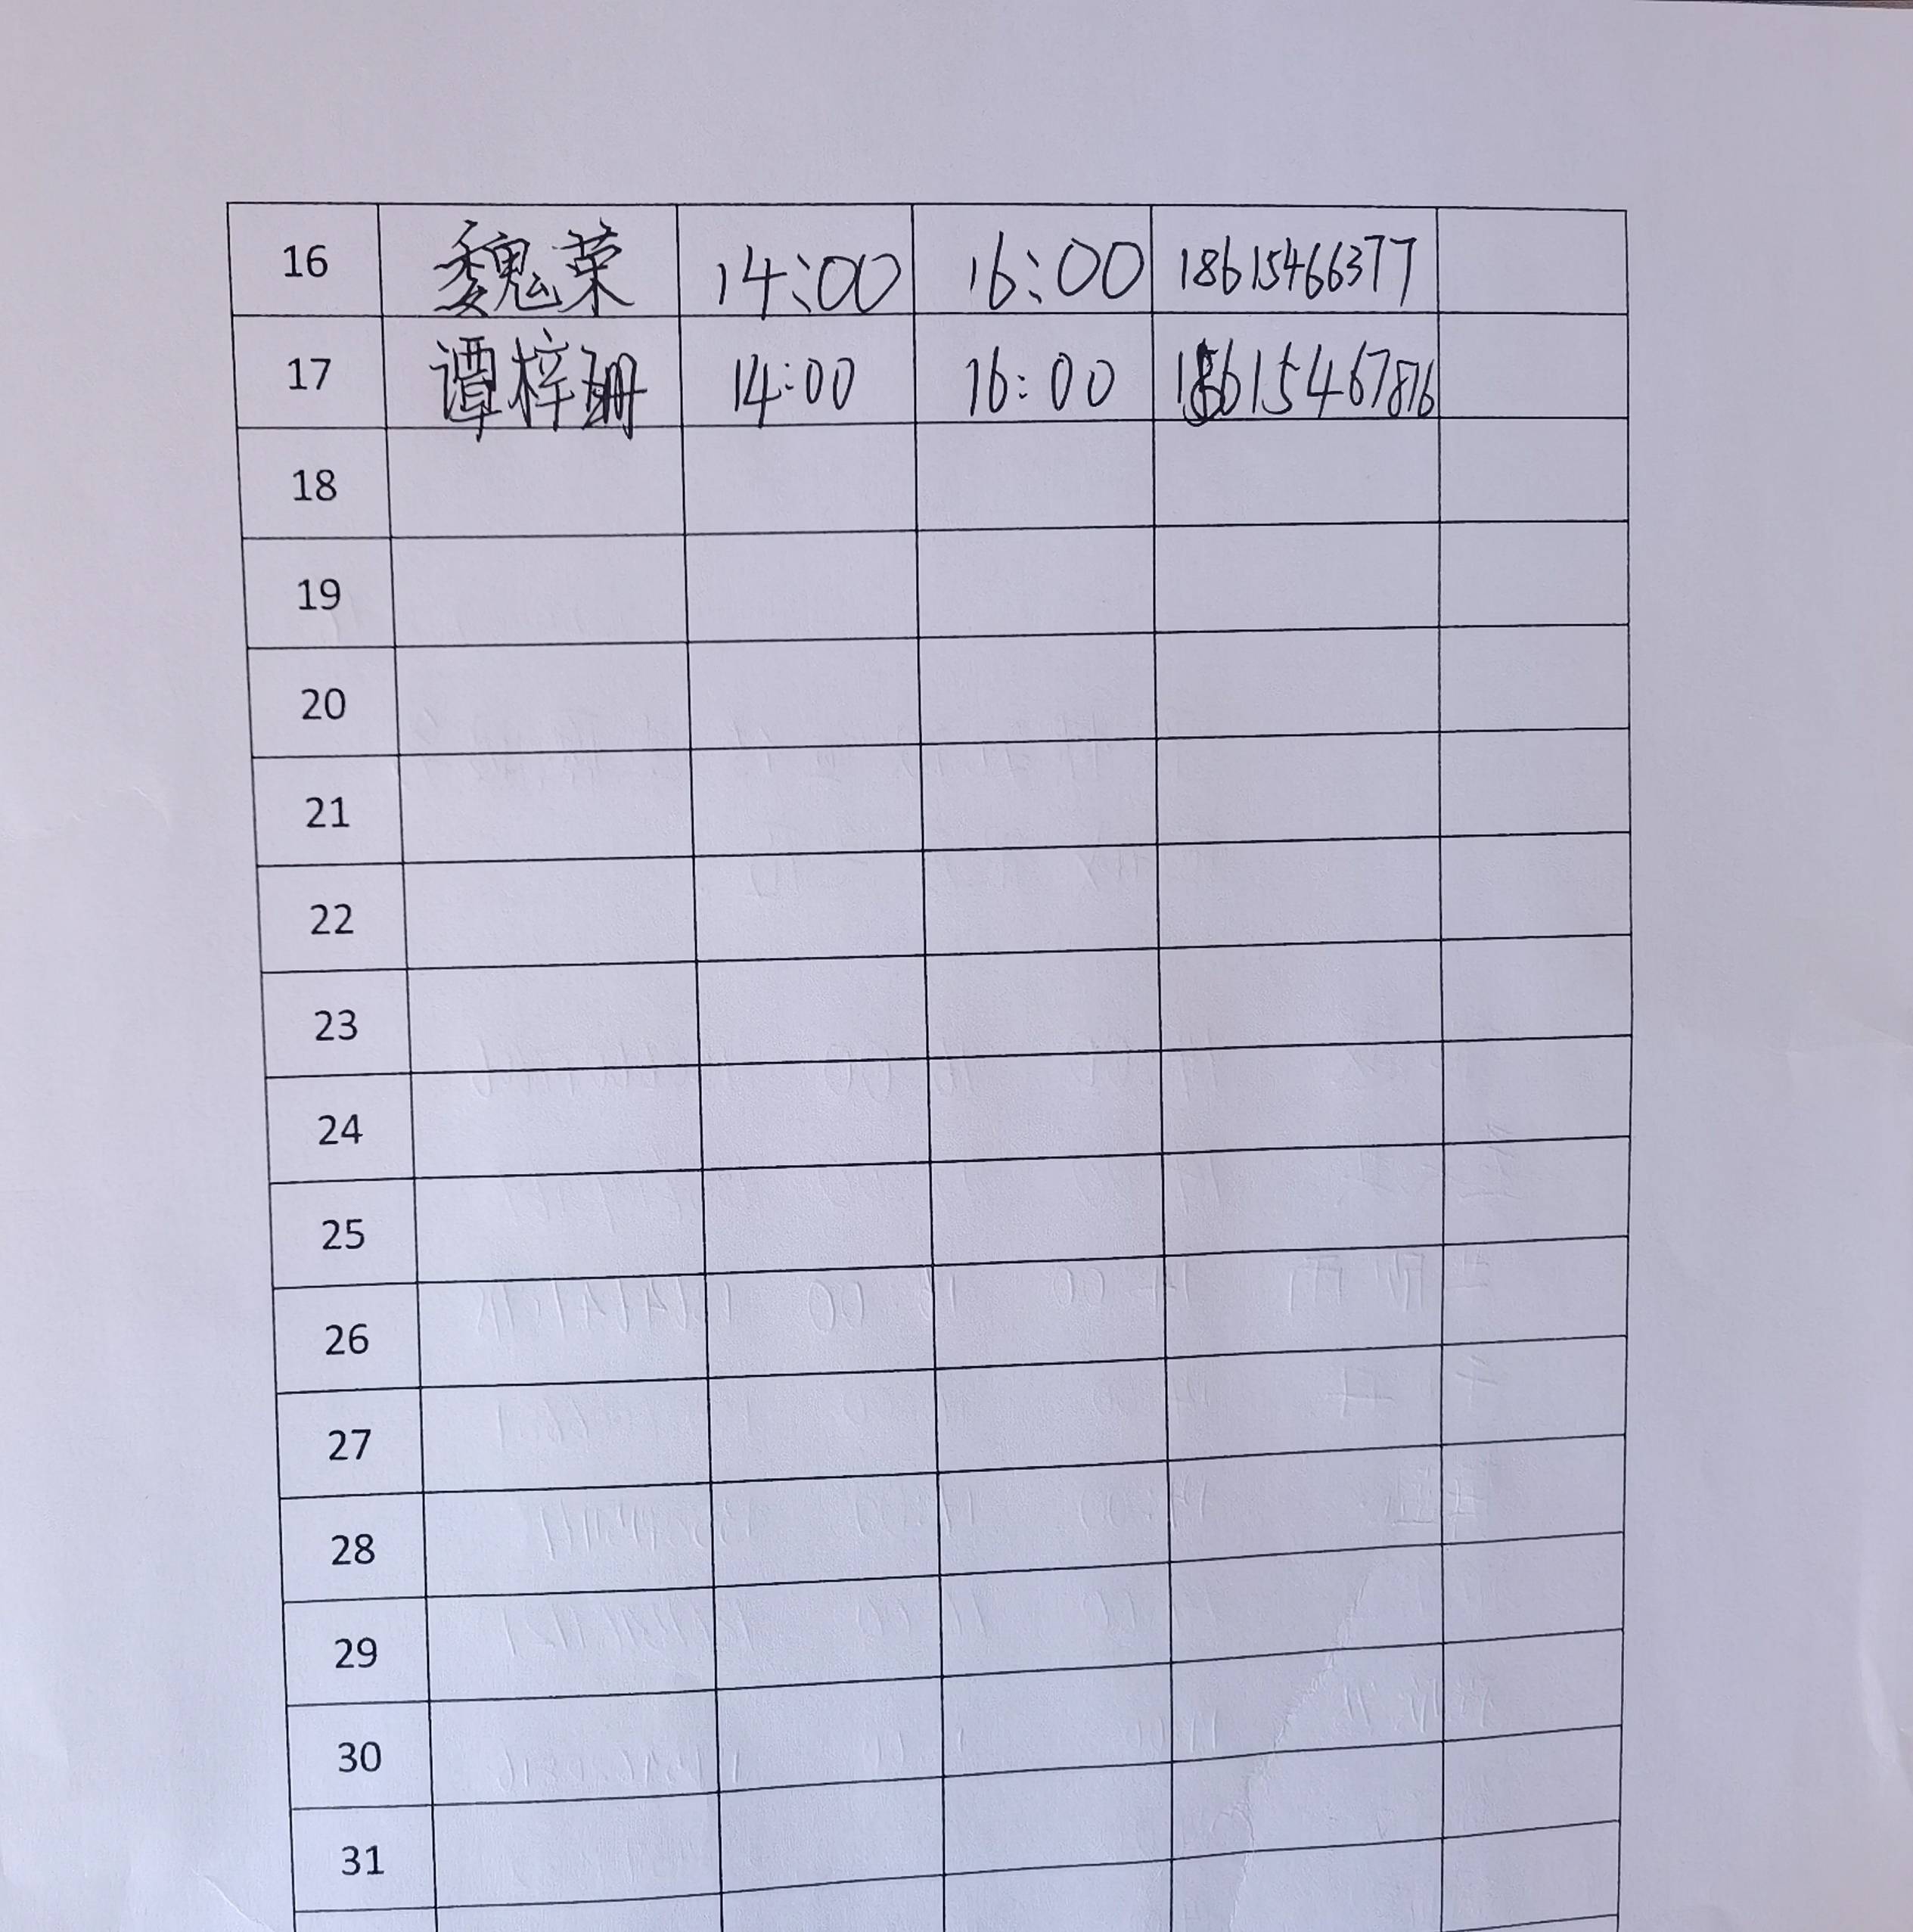 16 魏荣 14:00 16:00 18615466377
17 谭梓珊 14:00 16:00 18615467876
18
19
20
21
22
23
24
25
26
27
28
29
30
31